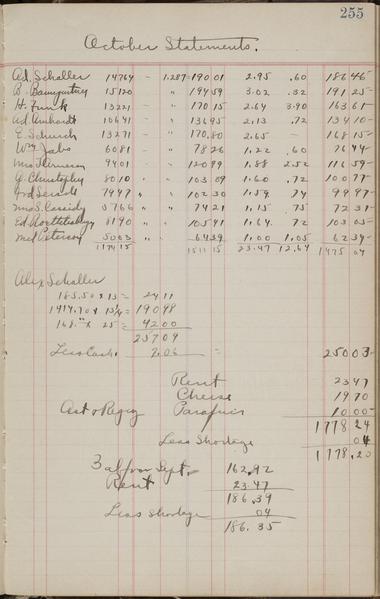 255
October Statements.
Ad. Schaller 14764 - 1.287 - 190 01 2.95 .60 186 46
B. Baumgartner 15120 " 194 59 3.02 .32 191 25
H. Funk 13221 - " 170 15 2.64 3.90 163 61
Ad. Amhardt 10641 " 136 95 2.13 .72 134 10
E. Schurch 13271 " 170.80 2.65 — 168 15
Wm Jabs 6081 - " 78 26 1.22 .60 76 44
9401 - " 120 99 1.88 2.52 116 59
G. Christopley 8010 " 103 09 1.60 .72 100 77
7947 " " 102 30 1.59 .74 99 97
Mrs S. Cassidy 5766 " " 74 21 1.15 .75 72 31
Ed. 8190 " " 105 41 1.64 .72 103 05
Med Peterson 5003 " " 64 39 1.00 1.05 62 34
1511 15 23.47 12.64 1475 04
Alex Schaller
183.50 x 13 = 24 11
1414.70 x 13½ = 190 98
168. x 25 = 42 00
257 09
Less Cash. 7.06 = 250 03
Rent 23 47
Cheese 19 70
Parafin 10 00
1778 24
Less Shortage 04
1778.20
Bal from Sept. 162.92
Rent 23.47
186.39
Less Shortage 04
186.35